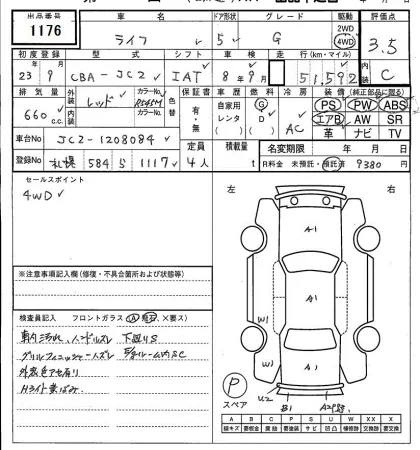 出品番号 車名 ドア形状 グレード 駆動 評価点
1176 ライフ 5 G 2WD 4WD 3.5
初度登録 型式 シフト 車検 走行(km・マイル) 内装
23年9月 CBA-JC2 IAT 8年9月 51,592 C
排気量 外装 カラーNo. 色替 保証書 車歴 燃料 冷房 装備(純正部品に限る)
660c.c. レッド R545M 有・無 自家用 レンタ G D AC PS PW ABS
内装 カラーNo. エアB AW SR
革 ナビ TV
車台No JC2-1208084 定員 積載量 名変期限 年 月 日
登録No 札幌 584 S 1117 4人 t R料金 未預託・預託済 9380円
セールスポイント
4WD
左 右
※注意事項記入欄(修復・不具合箇所および状態等)
検査員記入 フロントガラス(A 飛石 ×要ス)
車内汚れ、ハンドルスレ 下廻りS
外装色アセ有り
Hライト黄ばみ
A1
A1
W1
W1 A1
P
スペア
U2 B1
A B C P S U W X XX
線キズ 要板金 腐蝕 要塗装 サビ 凹凸 補修跡 要交換 交換跡